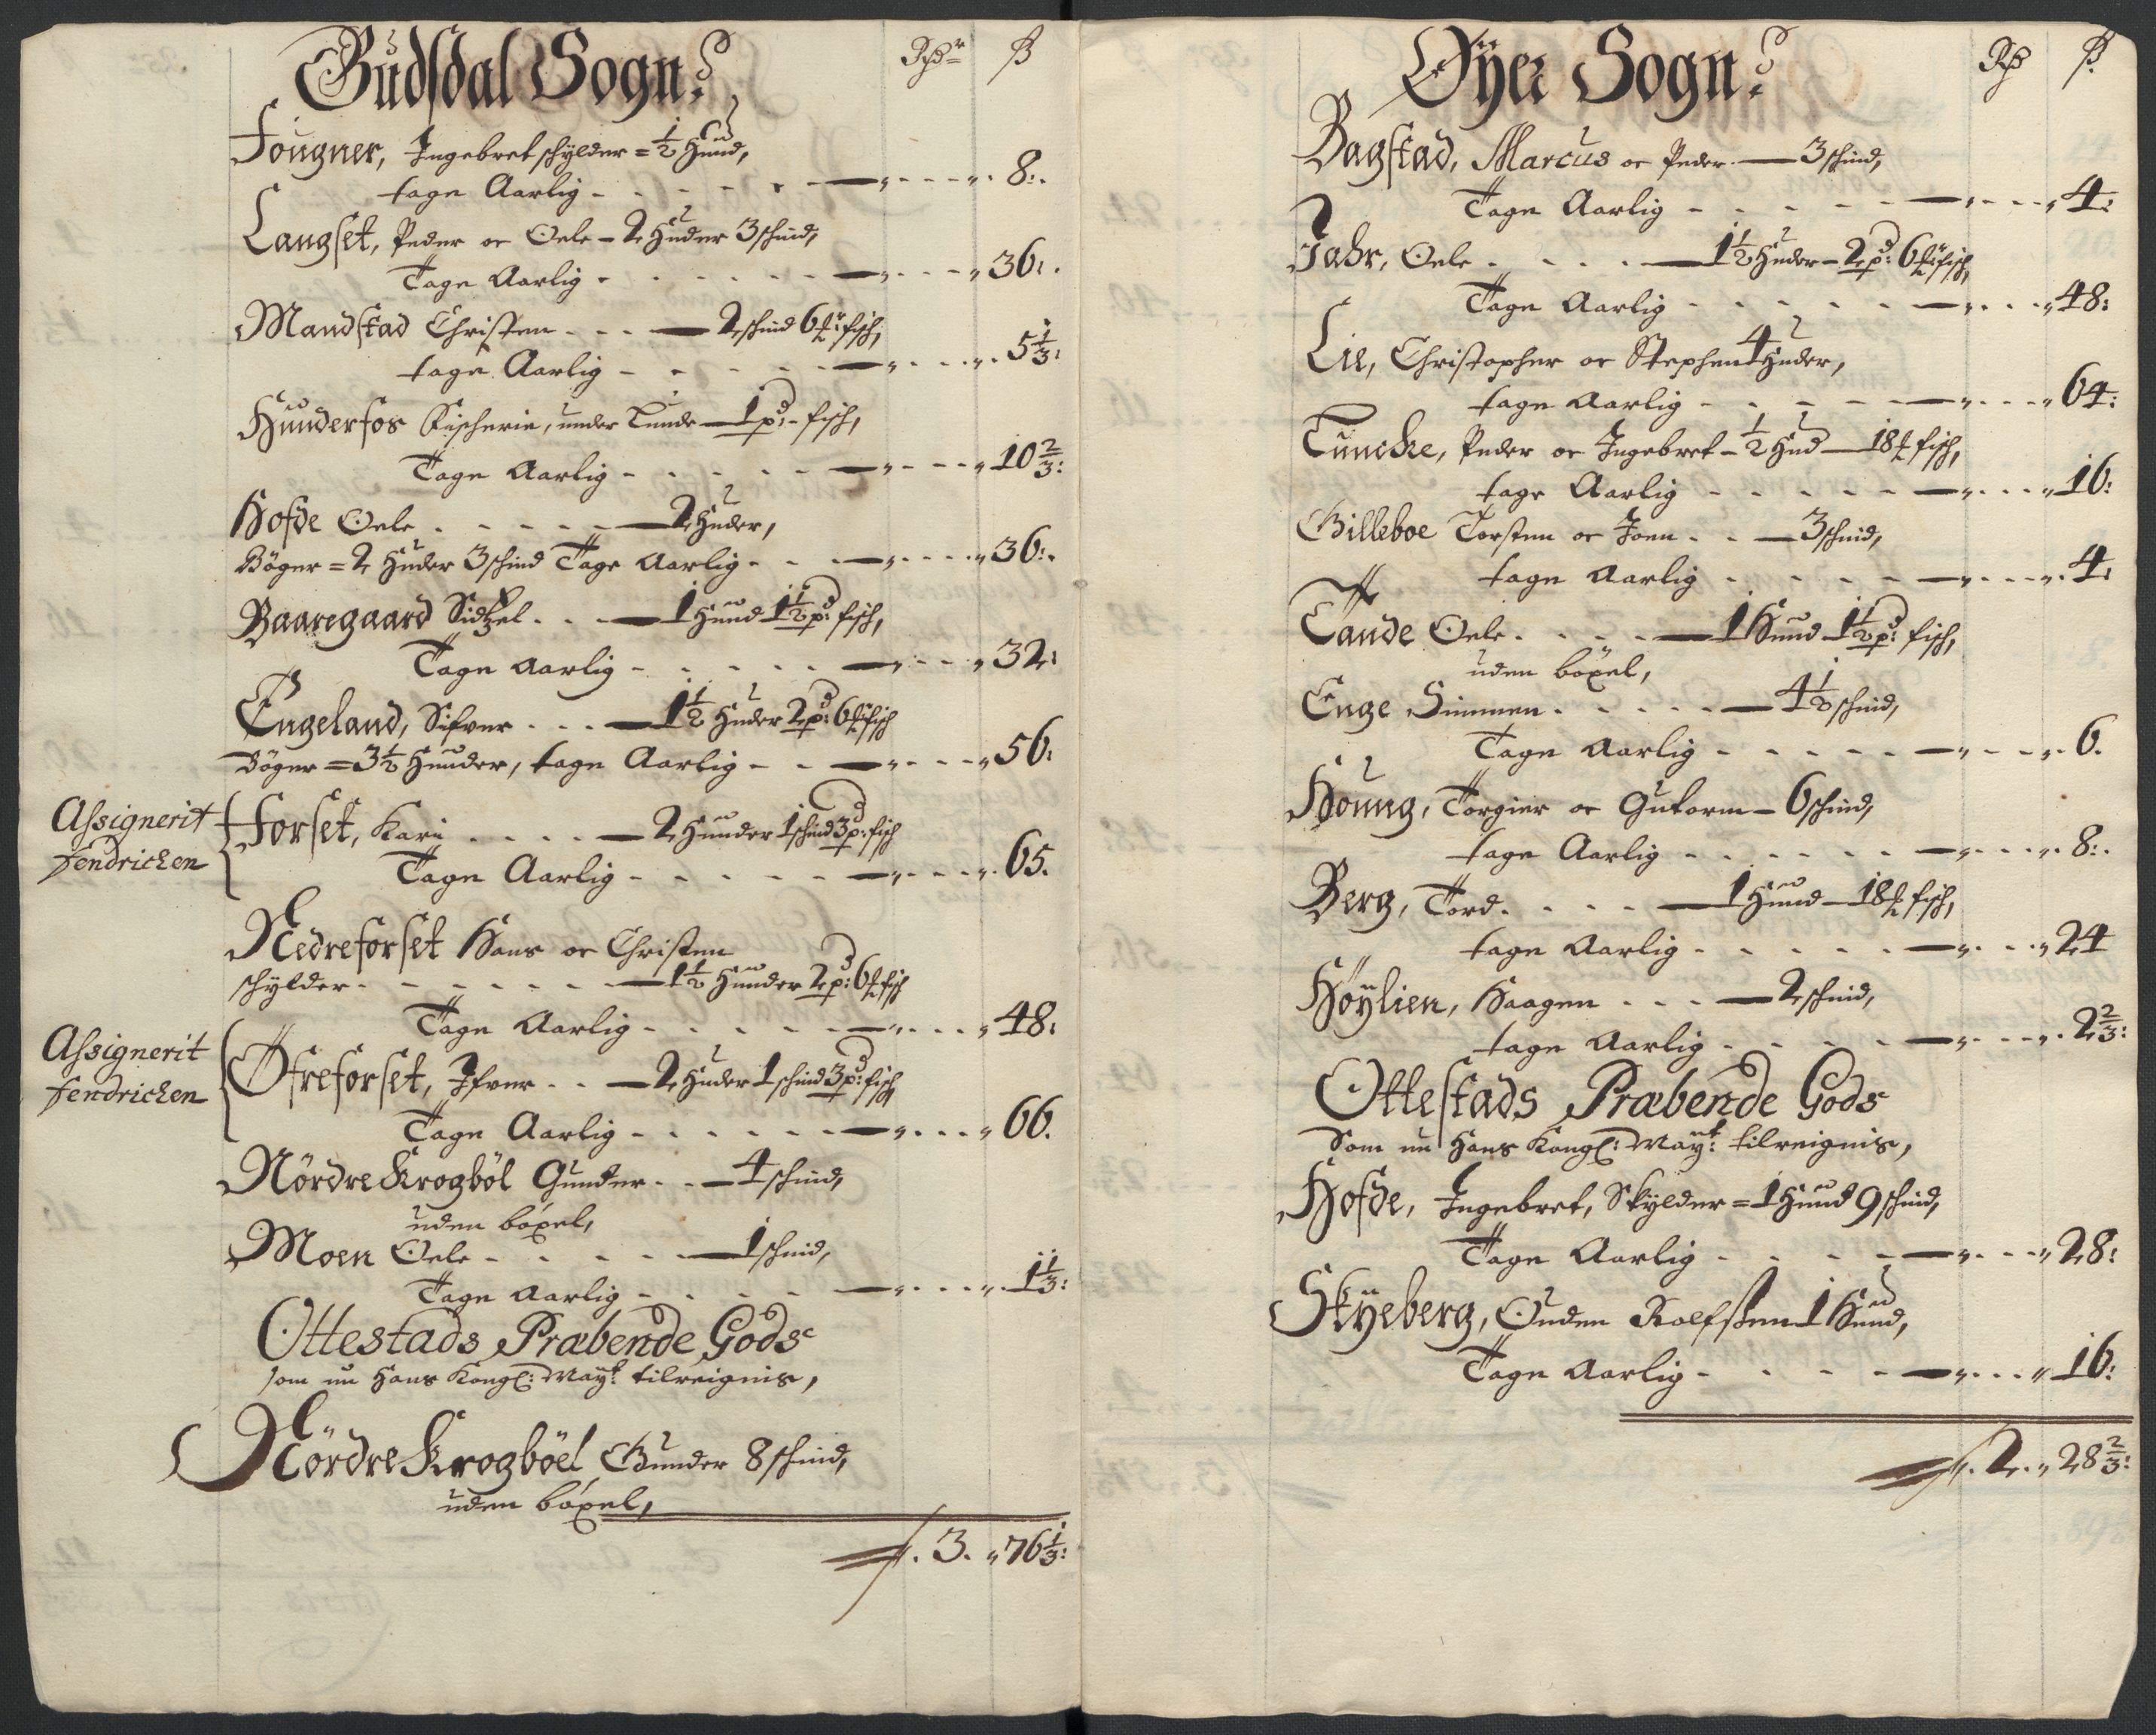 Gudsdal Sogn. Rdr ß
Fougner, Ingebret schylder = ½ Hund,
tage Aarlig - - - 8:
Langset, Peder oc Oele - 2 Huder 3 schind,
Tage Aarlig - - - 36:
Mandstad Christen - - - 2 schind 6 fisch,
tage Aarlig - - - 5⅓:
Hunderfos Fischerie, under Lunde - 1 pd: fisch,
Tage Aarlig - - - 10⅔:
Hofde Oele - - - 2 Huder,
Böger = 2 Huder 3 schind Tage Aarlig - - - 36:
Baaregaard Sidzel - - - 1 Hund 1½ pd: fisch,
Tage Aarlig - - - 32:
Engeland, Sifver - - - 1½ Huder 2 pd: 6 fisch
Böger = 3½ Hunder, tage Aarlig - - - 56:
Assignerit
Fendrichen
Forset, Kari - - - 2 Hunder 1 schind 3 pd: fisch
Tage Aarlig - - - 65.
Nedreforset Hans oc Christen
schylder - - - 1½ Hunder 2 pd: 6 fisch
Tage Aarlig - - - 48:
Assignerit
Fendrichen
Öfreforset, Ifver - - - 2 Huder 1 schind 3 pd: fisch
Tage Aarlig - - - 66.
Nördre Krogböl Gunder - - - 4 schind,
uden böxel,
Moen Oele - - - 1 schind,
Tage Aarlig - - - 1⅓:
Ottestads Præbende Gods
som nu Hans Kongl: Mayt: tilreignis,
Nördre Krogböel Gunder 8 schind,
uden böxel,
3. 76⅓:
Öyer Sogn. Rd ß
Bagstad, Marcus oc Peder - 3 schind,
Tage Aarlig - - - 4:
Jahr, Oele - - - 1½ Huder - 2 pd: 6 fisch,
Tage Aarlig - - - 48:
Lie, Christopher oc Stephen 4 Huder,
tage Aarlig - - - 64:
Tuncke, Peder oc Ingebret - ½ Hud - 18 fisch,
tage Aarlig - - - 16:
Gilleboe Torsten oc Joen - - - 3 schind,
tage Aarlig - - - 4:
Tande Oele - - - 1 Hund 1½ pd: fisch,
uden böxel,
Enge Simmen - - - 4½ schind,
Tage Aarlig - - - 6.
Houng, Torgier oc Gutorm - 6 schind,
tage Aarlig - - - 8:
Berg, Tord - - - 1 Hund - 18 fisch,
tage Aarlig - - - 24
Höylien, Haagen - - - 2 schind,
tage Aarlig - - - 2⅔:
Ottestads Præbende Gods
Som nu Hans Kongl: Mayt: tilreignis,
Hofde, Ingebret, Skylder = 1 Hund 9 schind,
Tage Aarlig - - - 28:
Skyeberg, Ouden Rolfssen 1 Hund,
Tage Aarlig - - - 16:
2. 28⅔: